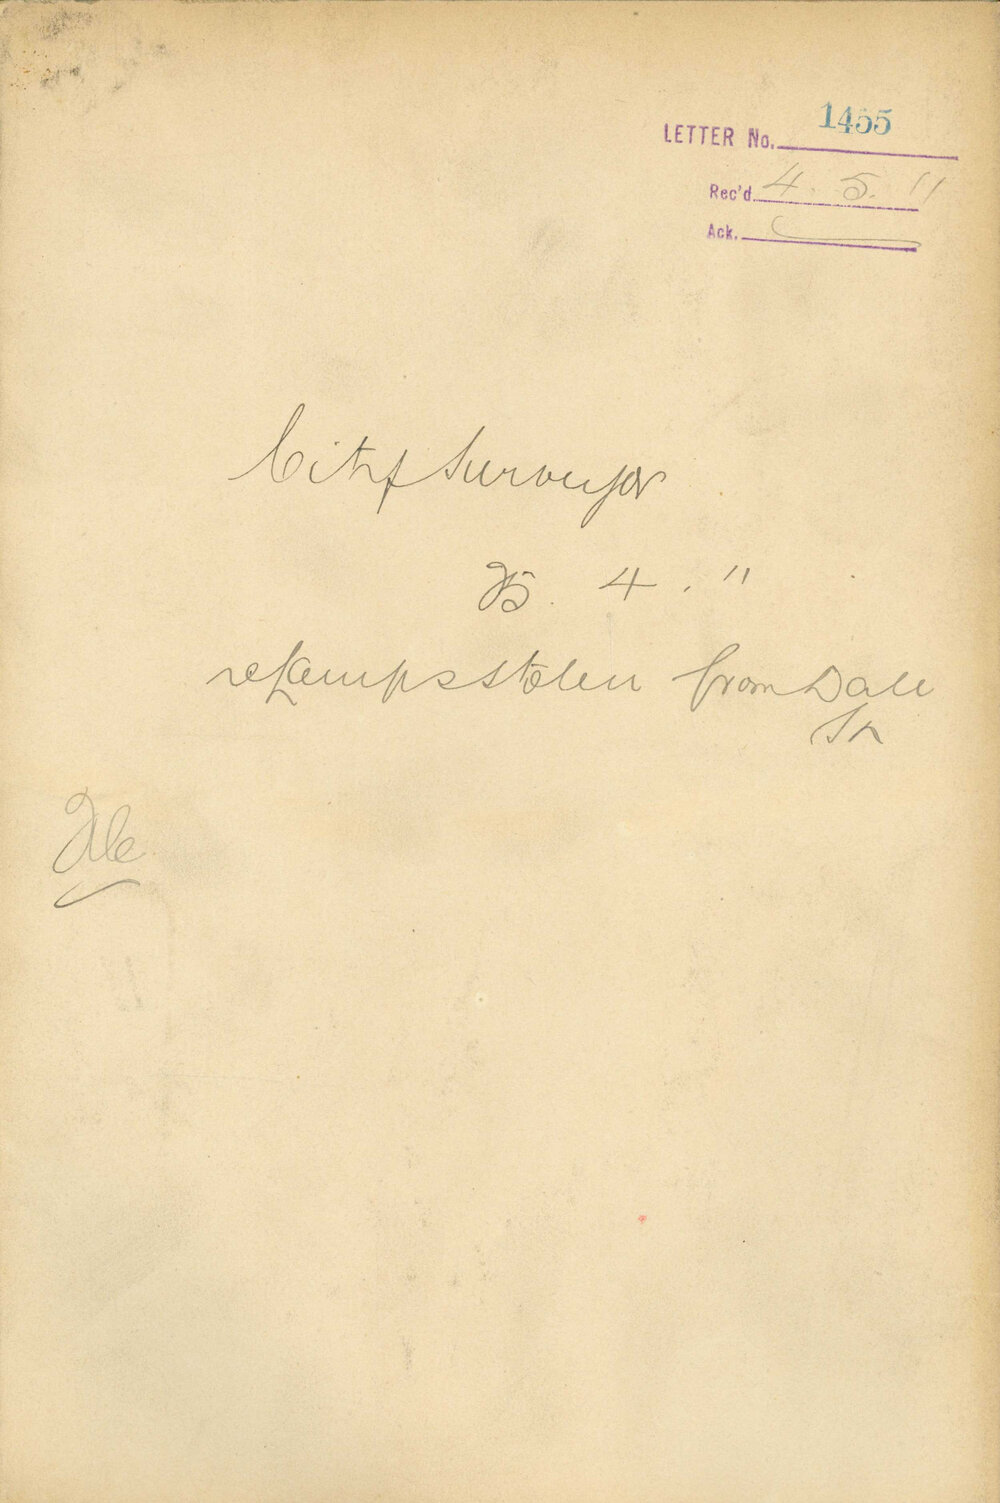 LETTER No. 1455
Rec'd 4. 5. 11
Ack.
City Surveyor
25. 4. 11
re Lamps stolen from Dale
St
File